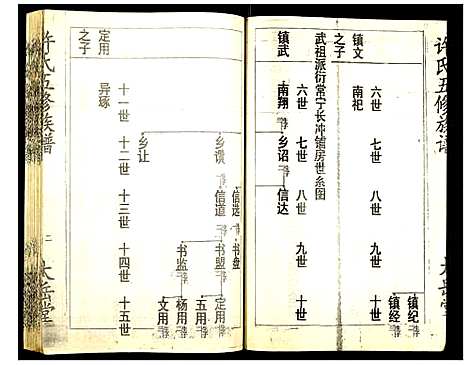 许氏五修族谱
太岳堂
镇文
之子
六世 七世 八世 九世 十世
南祀
镇纪
镇经
武祖派衍常宁长冲铺房世系图
镇武
六世 七世 八世 九世 十世
南翔
乡诏
信达
定用
之子
十一世 十二世 十三世 十四世 十五世
异琢
乡让
乡谟
信选
信道
书盘
书盟
书监
定用
五用
杨用
文用
许氏五修族谱
二
太岳堂